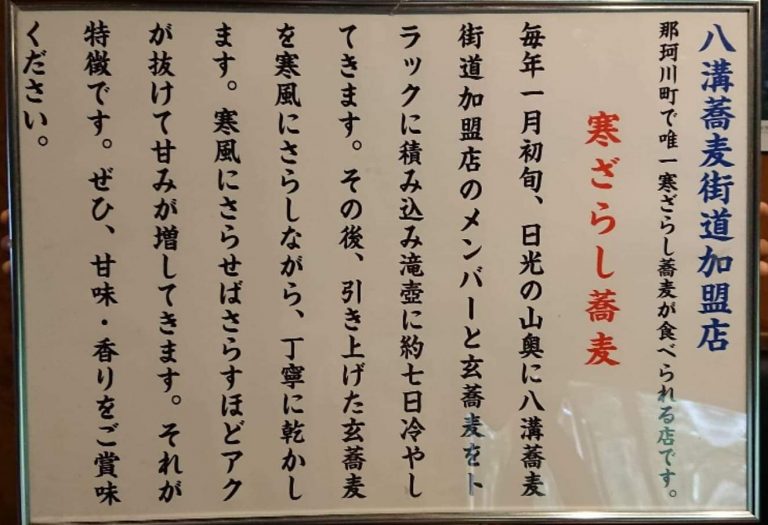 八溝蕎麦街道加盟店
那珂川町で唯一寒ざらし蕎麦が食べられる店です。
寒ざらし蕎麦
毎年一月初旬、日光の山奥に八溝蕎麦
街道加盟店のメンバーと玄蕎麦をト
ラックに積み込み滝壺に約七日冷やし
てきます。その後、引き上げた玄蕎麦
を寒風にさらしながら、丁寧に乾かし
ます。寒風にさらせばさらすほどアク
が抜けて甘みが増してきます。それが
特徴です。ぜひ、甘味・香りをご賞味
ください。